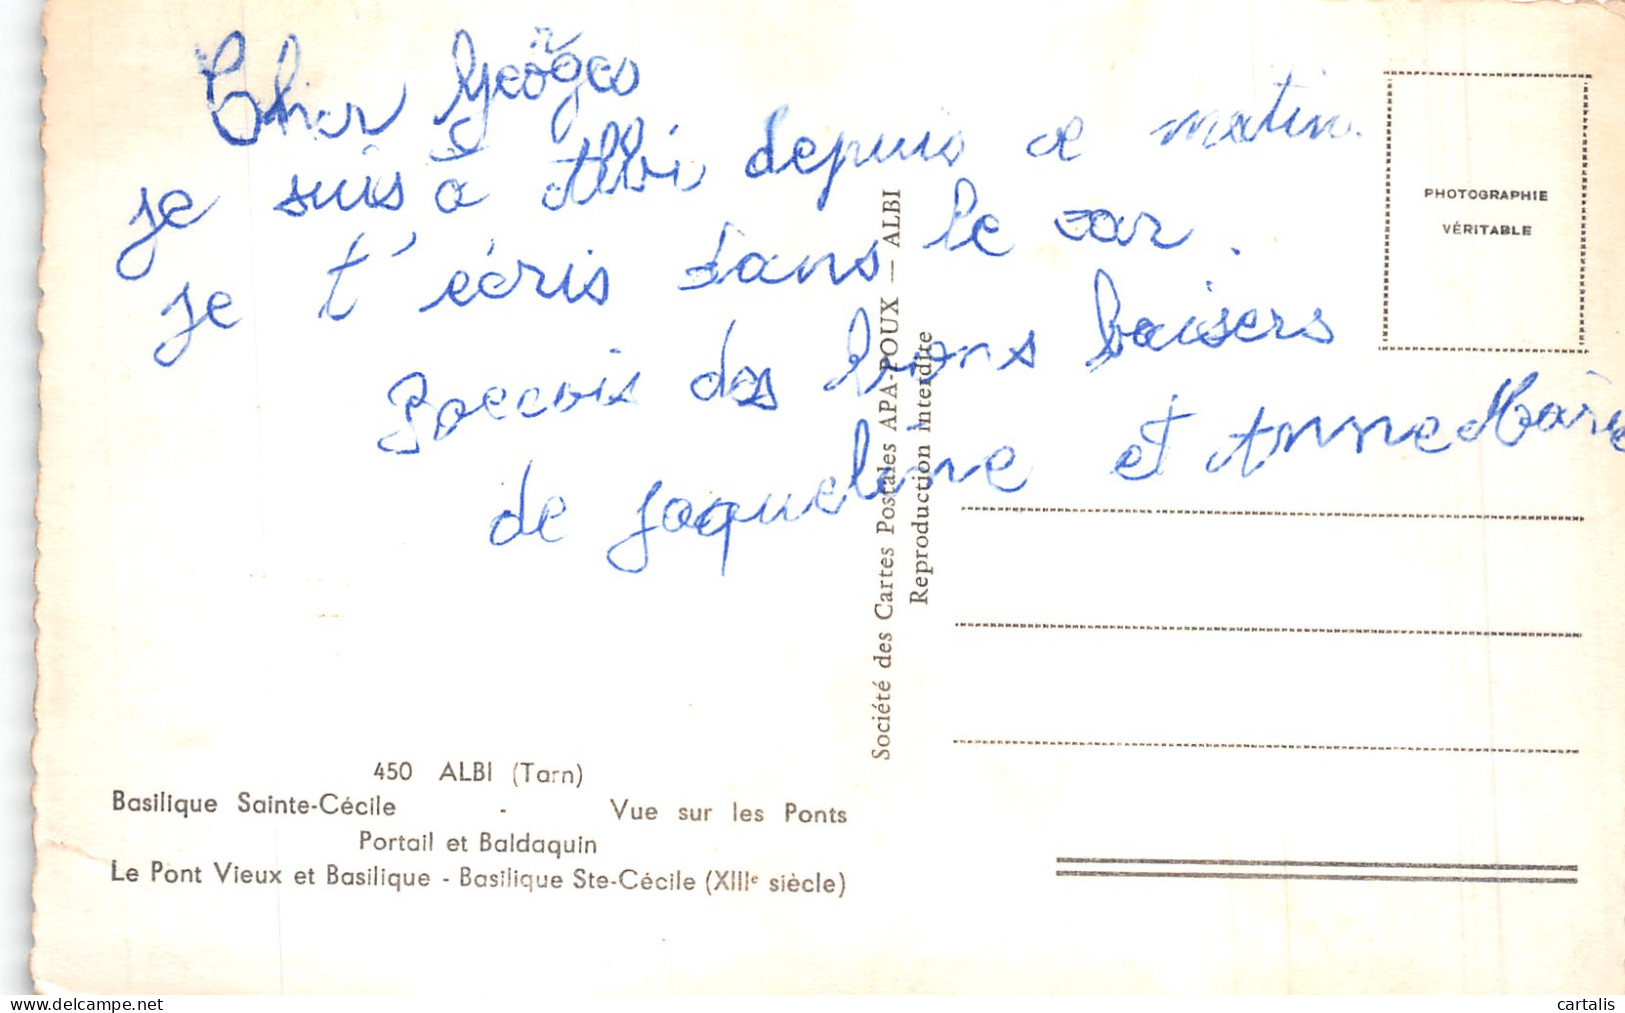 Cher Georges
je suis à Albi depuis ce matin.
je t'écris dans le car.
Reccois des bons baisers
de jaqueline et Anne Marie
PHOTOGRAPHIE
VÉRITABLE
Société des Cartes Postales APA-POUX — ALBI
Reproduction Interdite
450 ALBI (Tarn)
Basilique Sainte-Cécile - Vue sur les Ponts
Portail et Baldaquin
Le Pont Vieux et Basilique - Basilique Ste-Cécile (XIIIe siècle)
cartalis